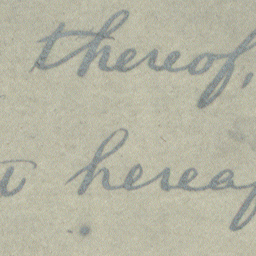 thereof,
hereaf